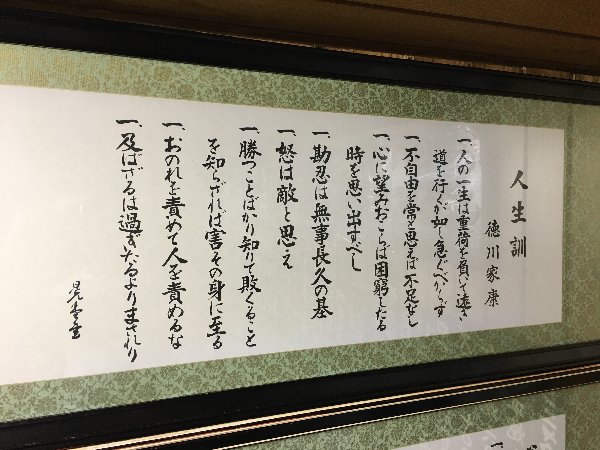 人生訓
徳川家康
一、人の一生は重荷を負いて遠き
道を行くが如し急ぐべからず
一、不自由を常と思えば不足なし
一、心に望みおこらば困窮したる
時を思い出すべし
一、勘忍は無事長久の基
一、怒は敵と思え
一、勝つことばかり知りて敗くること
を知らざれば害その身に至る
一、おのれを責めて人を責めるな
一、及ばざるは過ぎたるよりまされり